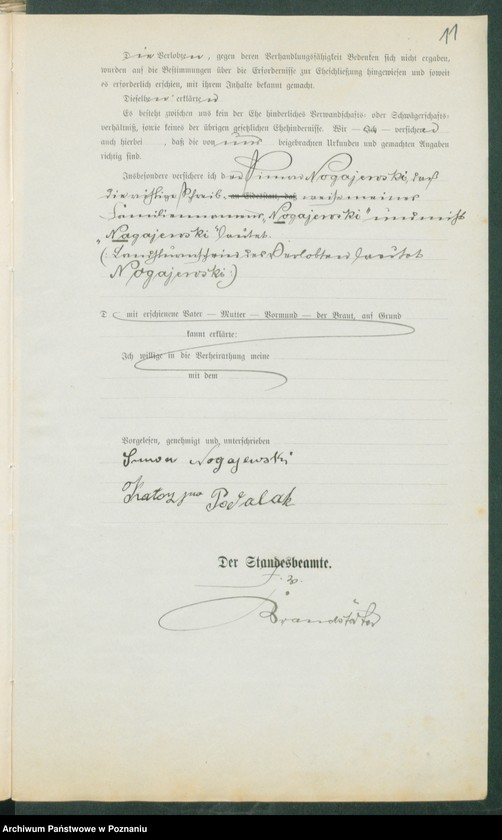 11
Die Verlobten, gegen deren Verhandlungsfähigkeit Bedenken sich nicht ergaben,
wurden auf die Bestimmungen über die Erfordernisse zur Eheschließung hingewiesen und soweit
es erforderlich erschien, mit ihrem Inhalte bekannt gemacht.
Dieselben erklärten
Es besteht zwischen uns kein der Ehe hinderliches Verwandschafts- oder Schwägerschafts-
verhältniß, sowie keines der übrigen gesetzlichen Ehehindernisse. Wir — Ich — versichern
auch hierbei, daß die von uns beigebrachten Urkunden und gemachten Angaben
richtig sind.
Insbesondere versichere ich der Simon Nogajewski, daß
die richtige Schreib- an Eidesstatt, daß weise meines
Familiennamens „Nogajewski" und nicht
„Nagajewski" lautet.
(: Landsturmschein des Verlobten lautet
Nogajewski :)
D mit erschienene Vater — Mutter — Vormund — der Braut, auf Grund
kannt erklärte:
Ich willige in die Verheirathung meine
mit dem
Vorgelesen, genehmigt und unterschrieben
Simon Nogajewski
Katarzyna
Der Standesbeamte.
Brandstäter
Archiwum Państwowe w Poznaniu